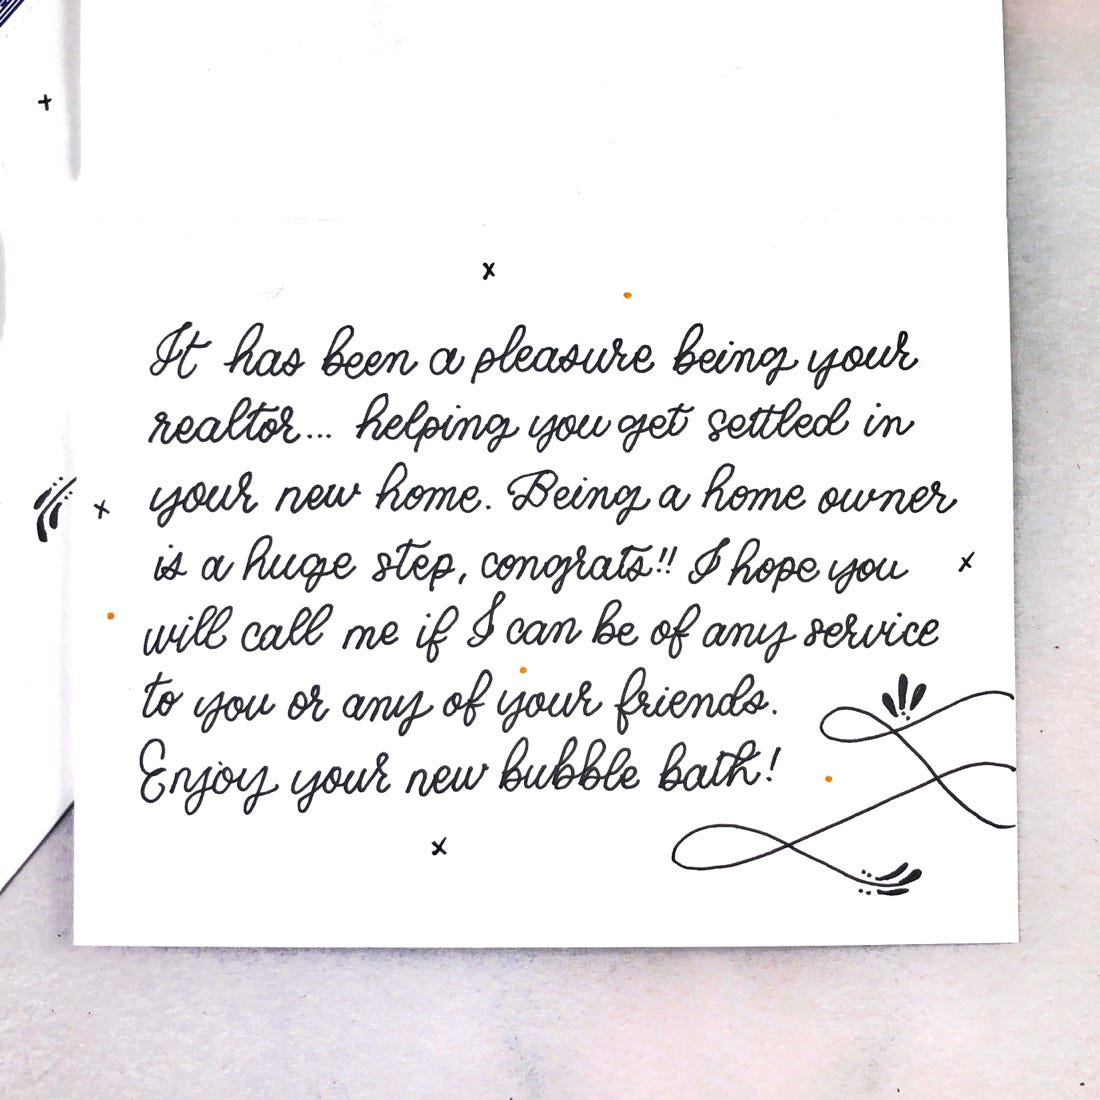 It has been a pleasure being your
realtor... helping you get settled in
your new home. Being a home owner
is a huge step, congrats!! I hope you
will call me if I can be of any service
to you or any of your friends.
Enjoy your new bubble bath!